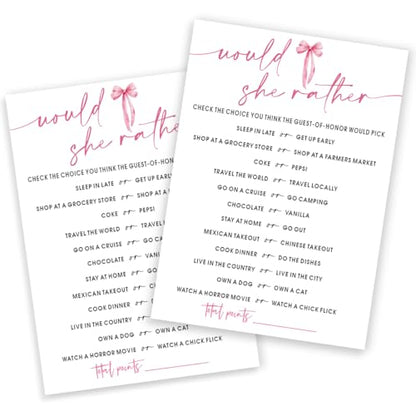 would
she rather
CHECK THE CHOICE YOU THINK THE GUEST-OF-HONOR
SLEEP IN LATE or GET UP EARLY
SHOP AT A GROCERY STORE or SHOP AT A
COKE or PEPSI
TRAVEL THE WORLD or TRAVEL
GO ON A CRUISE or GO CAMPING
CHOCOLATE or VANILLA
STAY AT HOME or GO OUT
MEXICAN TAKEOUT or
COOK DINNER or DO
LIVE IN THE COUNTRY or
OWN A DOG or OWN A CAT
WATCH A HORROR MOVIE or WATCH A CHICK FLICK
total points
would
she rather
CHECK THE CHOICE YOU THINK THE GUEST-OF-HONOR WOULD PICK
SLEEP IN LATE or GET UP EARLY
SHOP AT A GROCERY STORE or SHOP AT A FARMERS MARKET
COKE or PEPSI
TRAVEL THE WORLD or TRAVEL LOCALLY
GO ON A CRUISE or GO CAMPING
CHOCOLATE or VANILLA
STAY AT HOME or GO OUT
MEXICAN TAKEOUT or CHINESE TAKEOUT
COOK DINNER or DO THE DISHES
LIVE IN THE COUNTRY or LIVE IN THE CITY
OWN A DOG or OWN A CAT
WATCH A HORROR MOVIE or WATCH A CHICK FLICK
total points